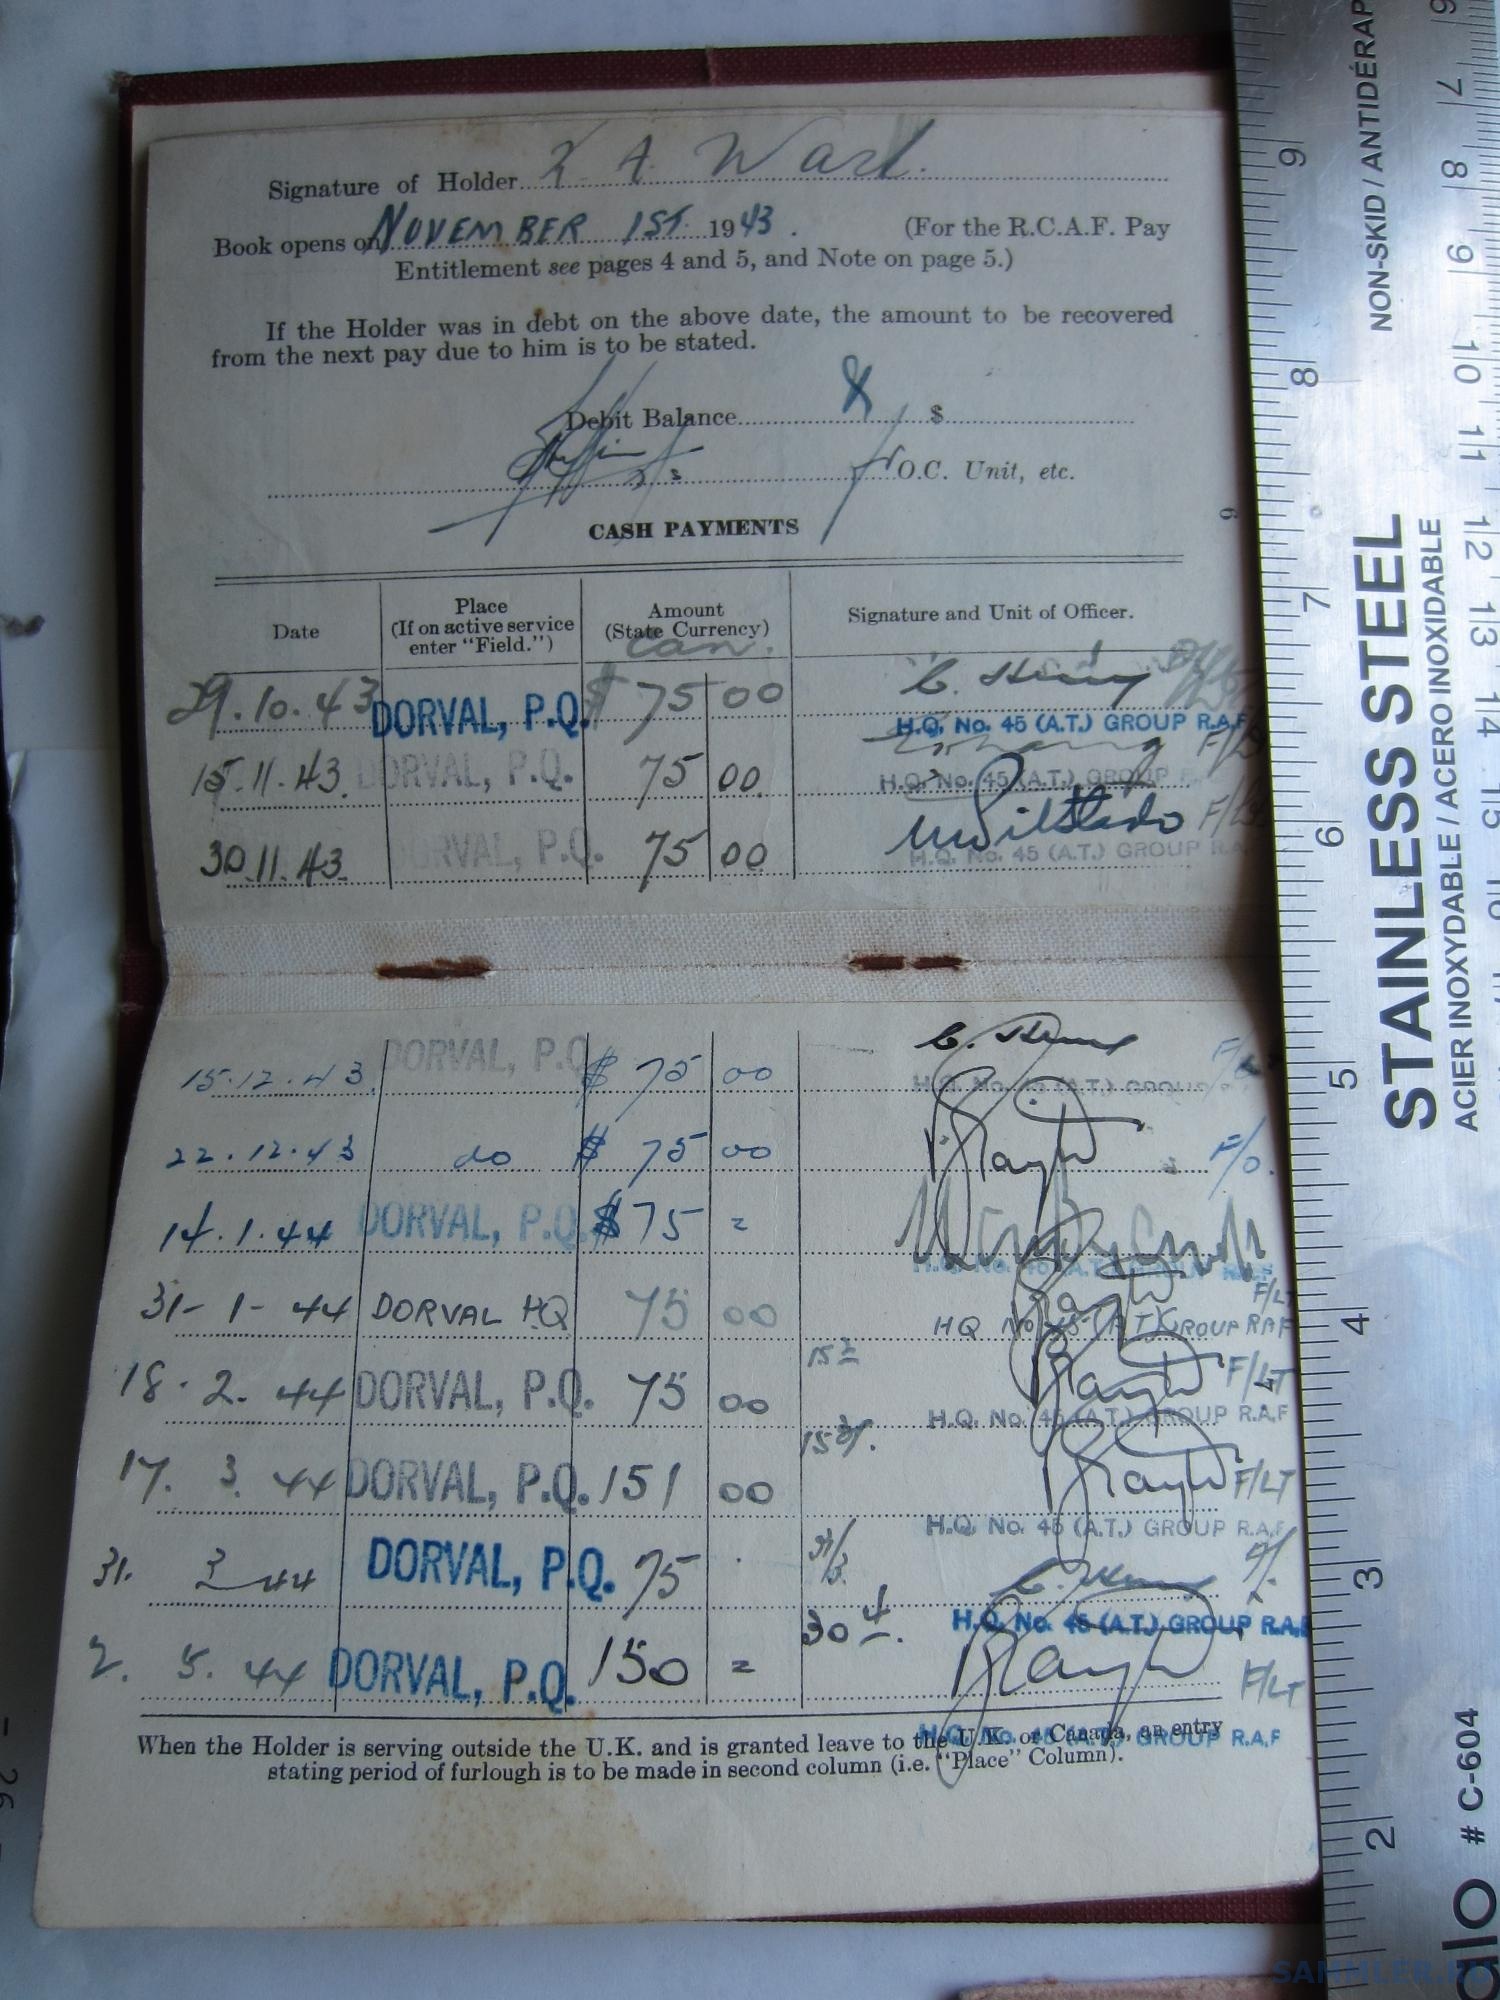 Signature of Holder A Ward.
Book opens on NOVEMBER 1ST. 1943. (For the R.C.A.F. Pay
Entitlement see pages 4 and 5, and Note on page 5.)
If the Holder was in debt on the above date, the amount to be recovered
from the next pay due to him is to be stated.
Debit Balance $
O.C. Unit, etc.
CASH PAYMENTS
Date
Place
(If on active service
enter "Field.")
Amount
(State Currency)
Can.
Signature and Unit of Officer.
29.10.43 DORVAL, P.Q. $ 75 00
H.Q. No. 45 (A.T.) GROUP R.A.F.
15.11.43. DORVAL, P.Q. 75 00.
H.Q. No. 45 (A.T.) GROUP
30.11.43. DORVAL, P.Q. 75 00
H.Q. No. 45 (A.T.) GROUP R.A.
15.12.43. DORVAL, P.Q. $ 75 00
H.Q. No. 45 (A.T.) GROUP
22.12.43 do $ 75 00 F/O.
14.1.44 DORVAL, P.Q. $75 =
H.Q. No. 45 (A.T.) GROUP R.A.F.
31-1-44 DORVAL PQ 75 00 F/LT
HQ No 45 (A T) GROUP RAF
18.2.44 DORVAL, P.Q. 75 00 F/LT
H.Q. No. 45 (A.T.) GROUP R.A.F
17.3.44 DORVAL, P.Q. 151 00 F/LT
H.Q. No. 45 (A.T.) GROUP R.A.F.
31.3.44 DORVAL, P.Q. 75 . 31/3.
H.Q. No. 45 (A.T.) GROUP R.A.F
2.5.44 DORVAL, P.Q. 150 = 30 4. F/LT
H.Q. No. 45 (A.T.) GROUP R.A.F
When the Holder is serving outside the U.K. and is granted leave to the U.K. or Canada, an entry
stating period of furlough is to be made in second column (i.e. "Place" Column).
NON-SKID / ANTIDÉRAP
STAINLESS STEEL
ACIER INOXYDABLE / ACERO INOXIDABLE
# C-604
9 8 7 6 5 4 3 2
7 8 9 10 11 12 13 14 15 16